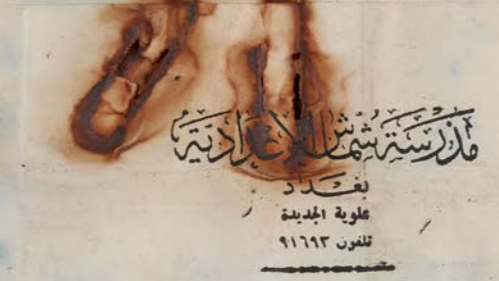 مدرسة شماش الإعدادية
بغداد
علوية الجديدة
تلفون ٩١٦٩٣